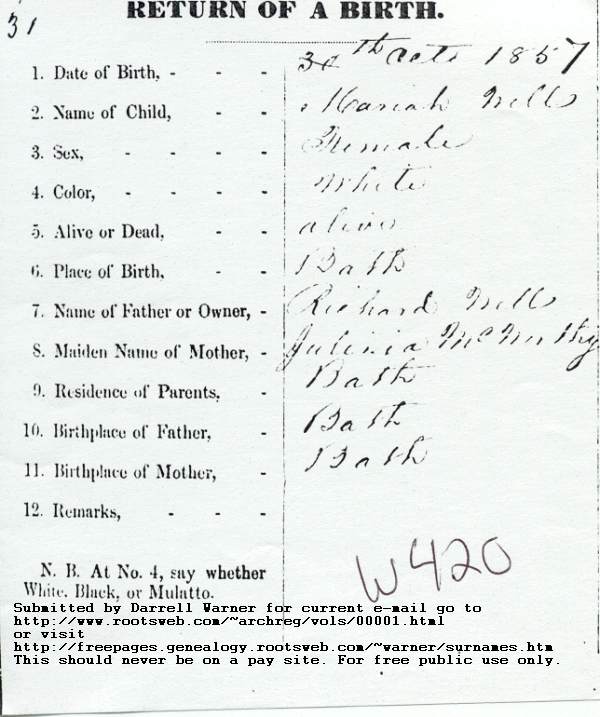 31
RETURN OF A BIRTH.
1. Date of Birth, - - - 30th Octo 1857
2. Name of Child, - - Mariah Will
3. Sex, - - - - Female
4. Color, - - - - White
5. Alive or Dead, - - alive
6. Place of Birth, - - Bath
7. Name of Father or Owner, - Richard Will
8. Maiden Name of Mother, -
9. Residence of Parents, - Bath
10. Birthplace of Father, - Bath
11. Birthplace of Mother, - Bath
12. Remarks, - - -
W420
N. B. At No. 4, say whether
White, Black, or Mulatto.
Submitted by Darrell Warner for current e-mail go to
http://www.rootsweb.com/~archreg/vols/00001.html
or visit
http://freepages.genealogy.rootsweb.com/~warner/surnames.htm
This should never be on a pay site. For free public use only.